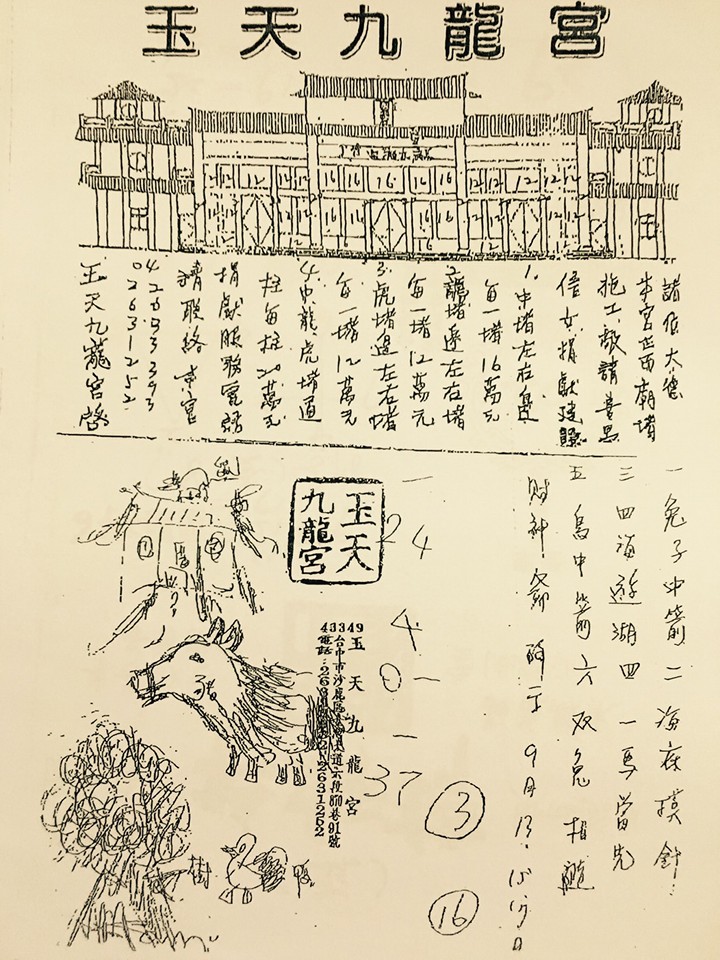 玉天九龍宮
12 12 12 12 12 16 16 16 16 16 12 12 12 12 12
諸位大德
本宮正面廟堵
施工敬請善男
信女捐獻建
1.中堵左右邊
每一堵16萬元
2.龍堵邊左右堵
每一堵12萬元
3.虎堵邊左右堵
每一堵12萬元
4.中龍.虎堵通
柱每柱20萬元
捐獻服務電話
請聯絡本宮
04 26933393
02 631252
玉天九龍宮啓
一兔子中箭二海底摸針
三四海遊湖四一馬當先
五鳥中箭六双兔相
財神爺 9月13.15.17日
玉天
九龍宮
43349
台中市沙鹿區
道六段870巷91號
電話
玉天九龍宮
一
24
4
0一
一
37
3
16
豬
樹
鴨